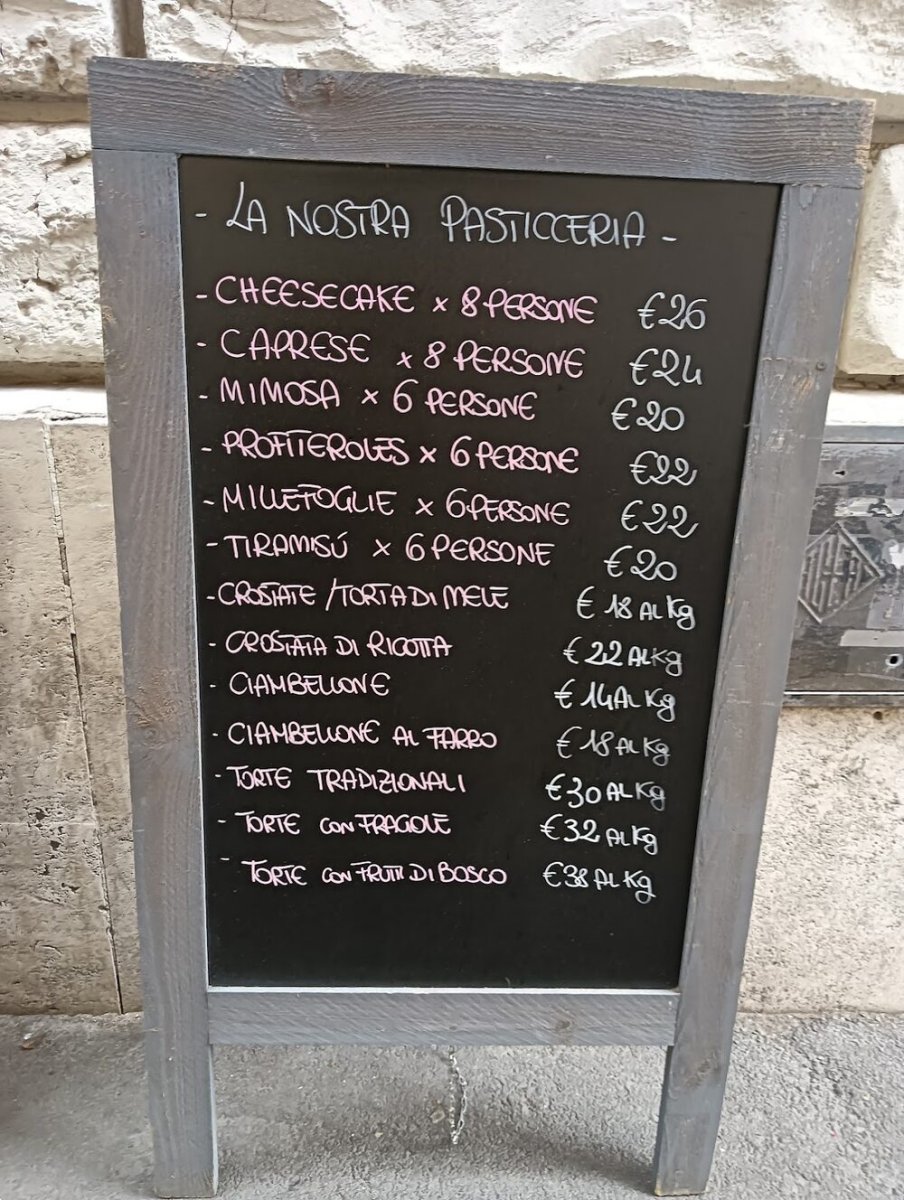 - LA NOSTRA PASTICCERIA -
- CHEESECAKE x 8 PERSONE €26
- CAPRESE x 8 PERSONE €24
- MIMOSA x 6 PERSONE €20
- PROFITEROLES x 6 PERSONE €22
- MILLEFOGLIE x 6 PERSONE €22
- TIRAMISÚ x 6 PERSONE €20
- CROSTATE / TORTA DI MELE €18 AL Kg
- CROSTATA DI RICOTTA €22 AL Kg
- CIAMBELLONE €14 AL Kg
- CIAMBELLONE AL FARRO €18 AL Kg
- TORTE TRADIZIONALI €30 AL Kg
- TORTE con FRAGOLE €32 AL Kg
- TORTE con FRUTTI DI BOSCO €38 AL Kg